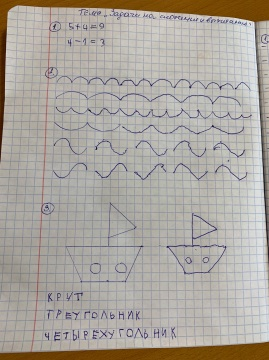 Тема: Задачи на сложение и вычитание.
① 5+4=9
4-1=3
②
③
КРУГ
ТРЕУГОЛЬНИК
ЧЕТЫРЕХУГОЛЬНИК